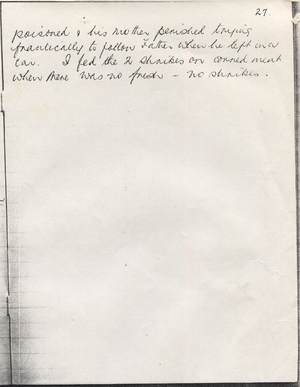 27.
poisoned & his mother perished trying
frantically to follow Father when he left in a
car. I fed the 2 shrikes on corned meat
when there was no fresh - no shrikes.